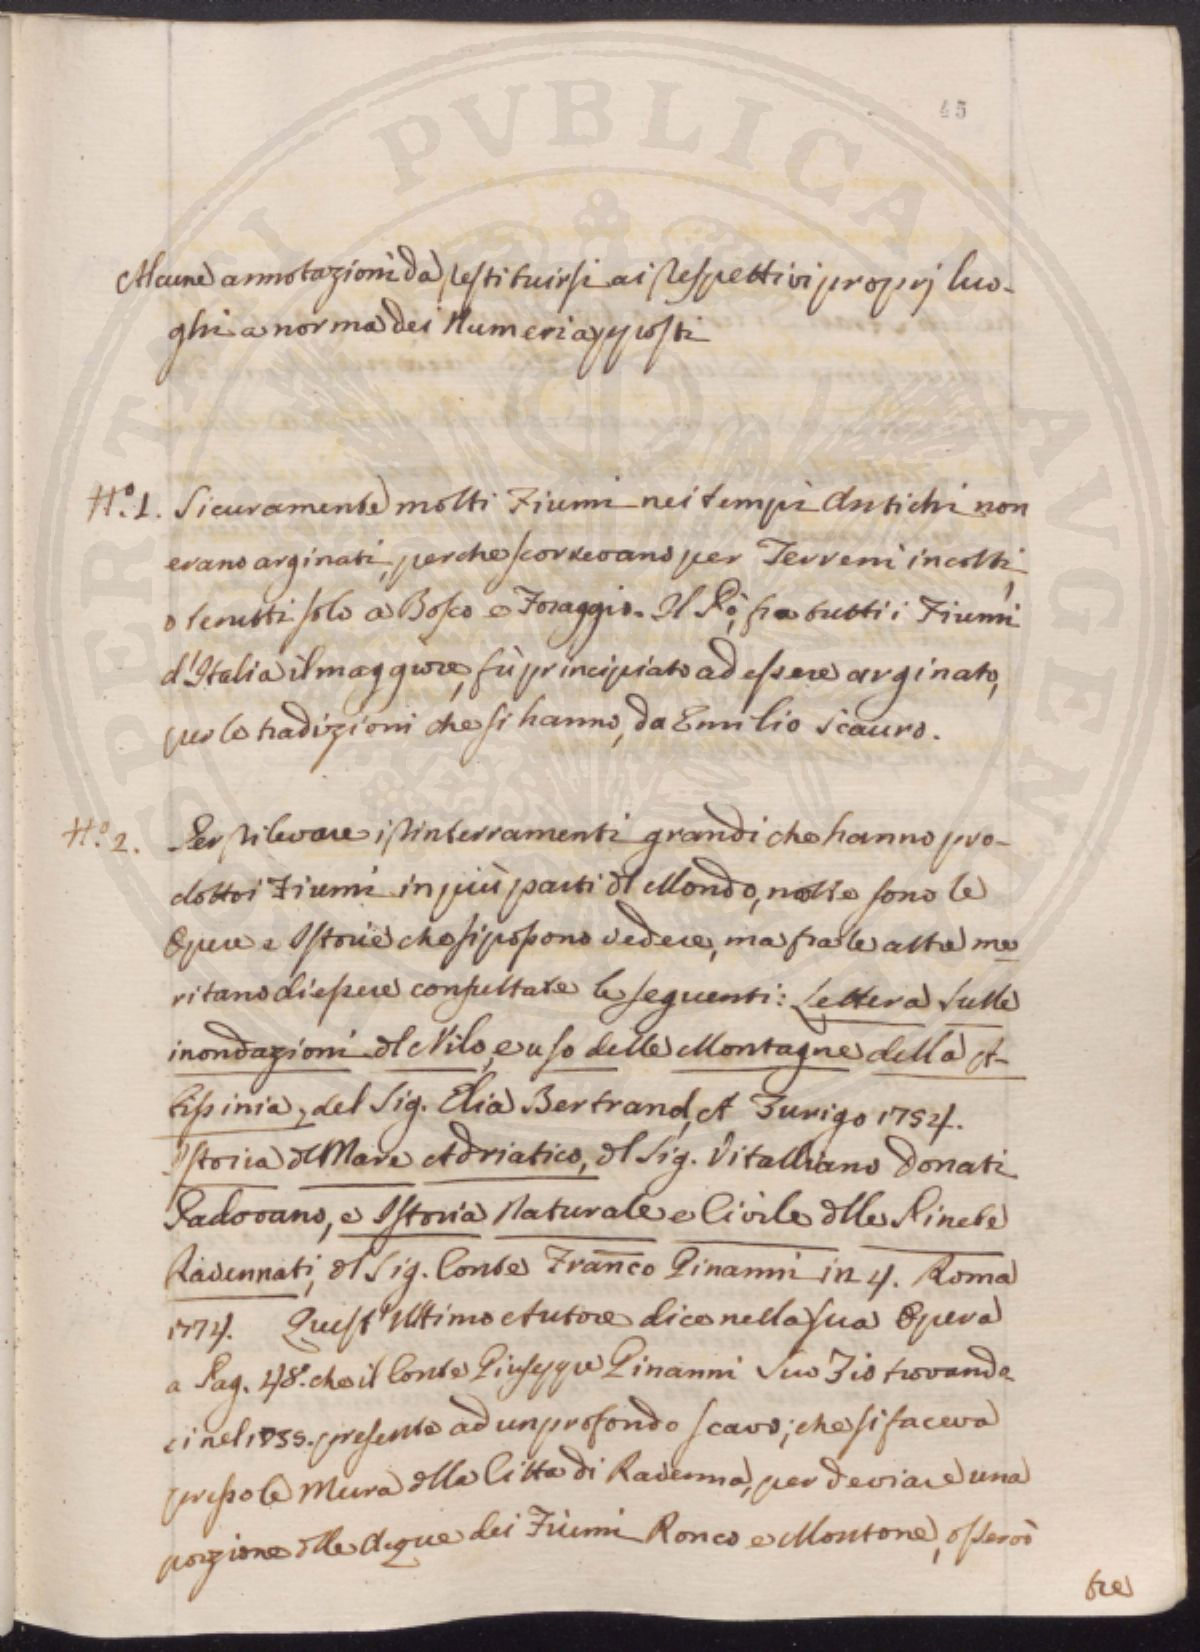 45
Alcune annotazioni da restituirsi ai respettivi proprj luo-
ghi a norma dei Numeri apposti
N.º 1. Sicuramente molti Fiumi nei tempi Antichi non
erano arginati, perche scorrevano per Terreni incolti,
o tenutti solo a Bosco e Foraggio. Il Pò, fra tutti i Fiumi
d'Italia il maggiore, fù principiato ad essere arginato,
per le tradizioni che si hanno, da Emilio Scauro.
N.º 2. Per rilevare i rinterramenti grandi che hanno pro-
dotto i Fiumi in più parti dl Mondo, molte sono le
Opere e Istorie che si possono vedere, ma fra le altre me
ritano di essere consultate le seguenti: Lettera sulle
inondazioni dl Nilo, e uso delle Montagne della A-
bissinia, del Sig. Elia Bertrand, A Zurigo 1754.
Istoria dl Mare Adriatico, dl Sig. Vitalliano Donati
Padovano, e Istoria Naturale e Civile dlle Pinete
Ravennati, dl Sig. Conte Franco Ginanni in 4. Roma
1774. Quest' Ultimo Autore dice nella sua Opera
a Pag. 48. che il Conte Giuseppe Ginanni suo Zio trovando
ci nel 1733. presente ad un profondo scavo; che si faceva
presso le Mura dlla Citta di Ravenna, per deviare una
porzione dlle Acque dei Fiumi Ronco e Montone, osservò
tre
SPERTAI PVBLICAI AVGENDO